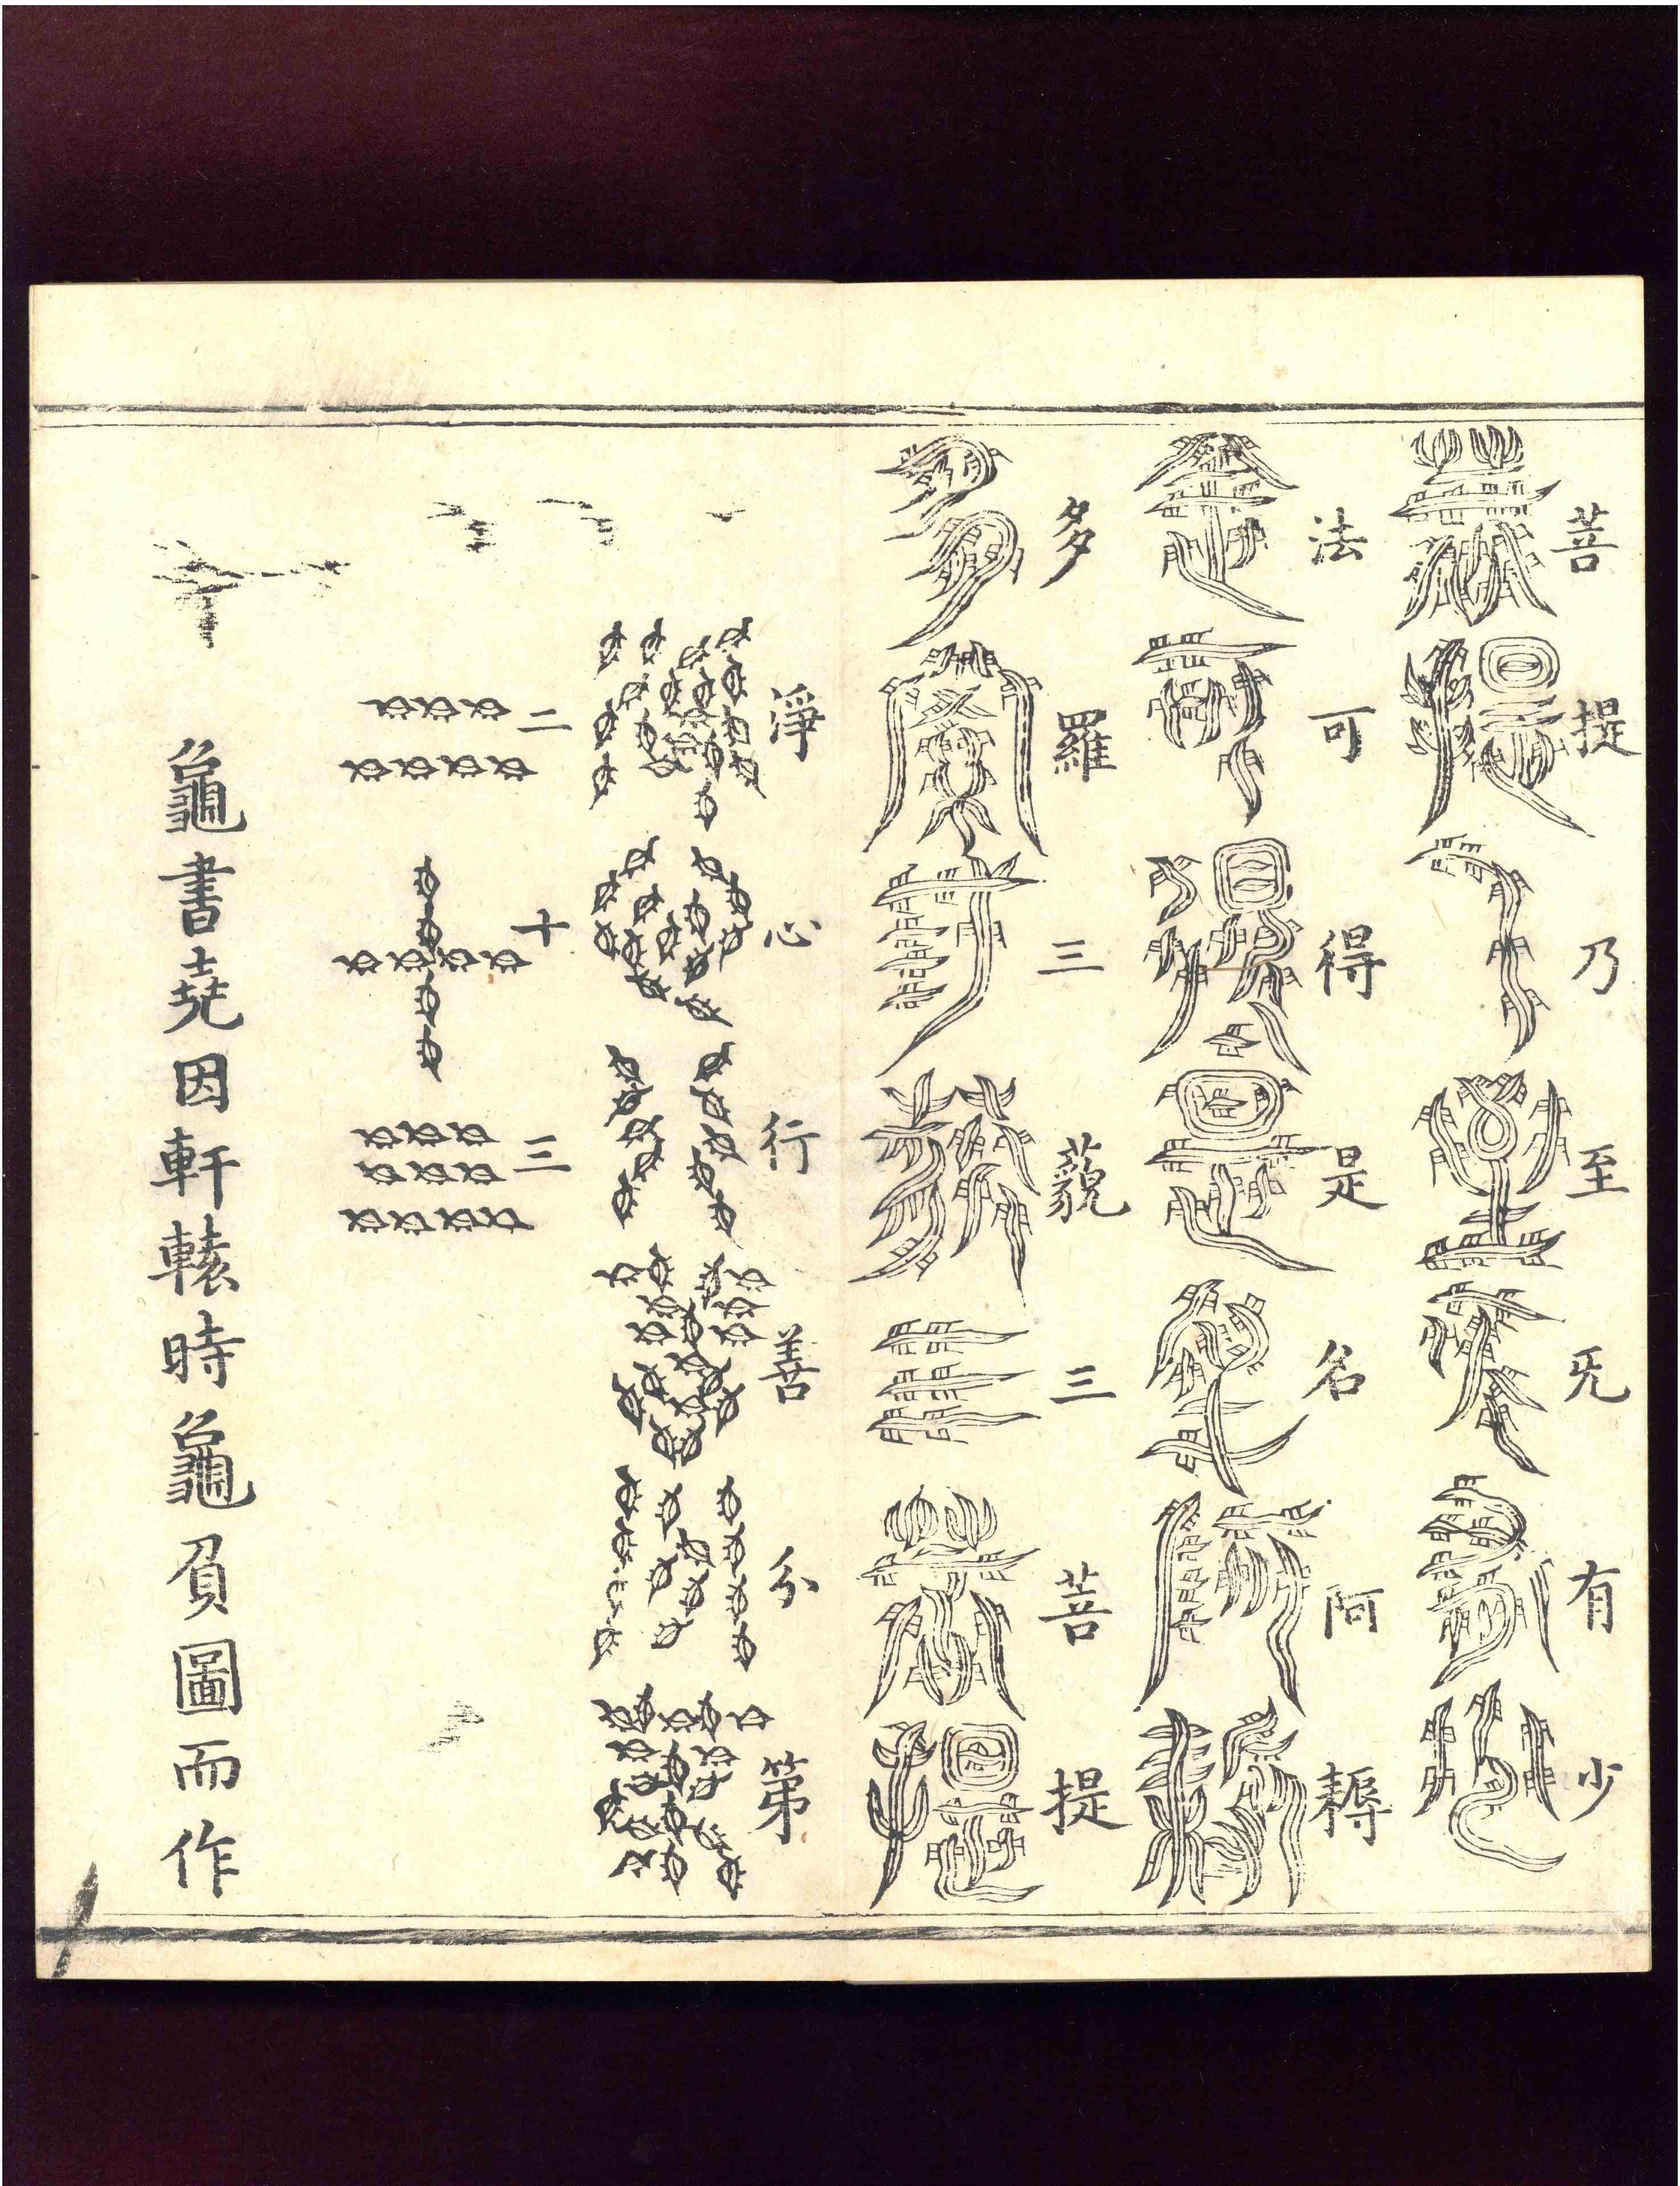 菩提乃至旡有少
法可得是名阿耨
多羅三藐三菩提
淨心行善分第
二十三
龜書堯因軒轅時龜負圖而作